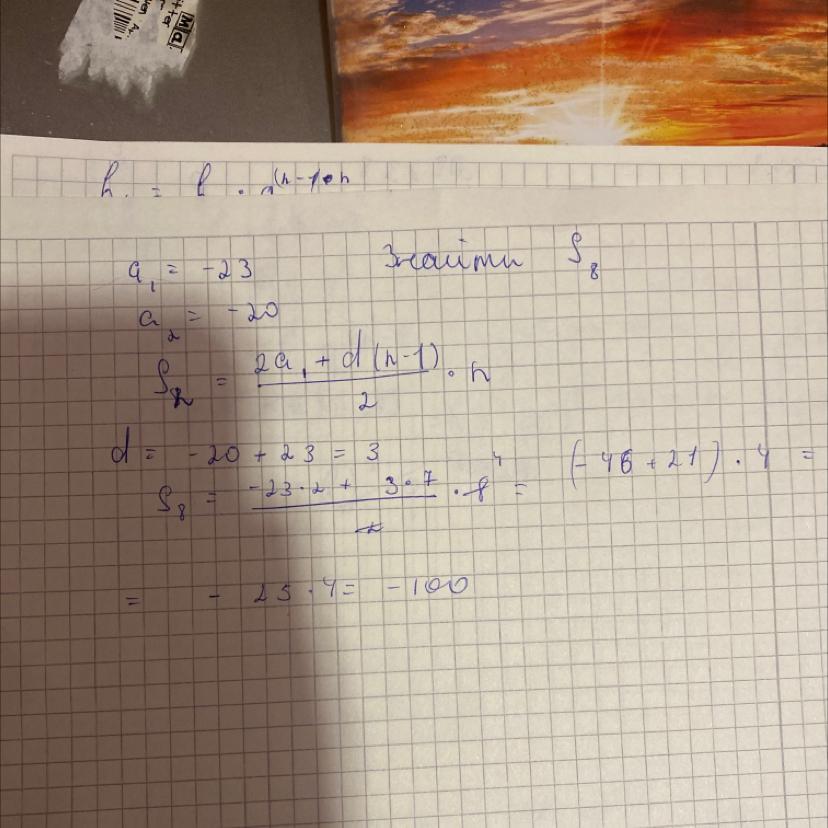 a₁ = -23 Знайти S₈
a₂ = -20
Sₙ = (2a₁ + d(n-1))/2 · n
d = -20 + 23 = 3
S₈ = (-23·2 + 3·7)/2 · 8 ⁴ = (-46 + 21) · 4 =
= - 25 · 4 = -100